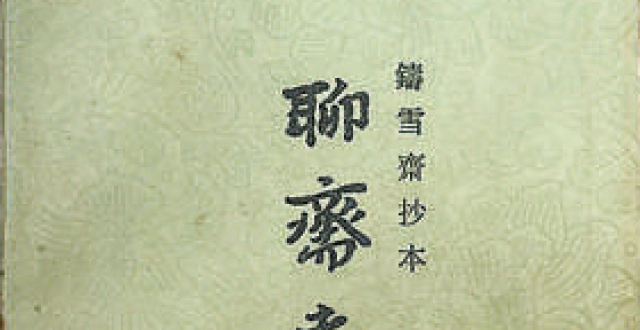 鑄雪齋抄本
聊齋